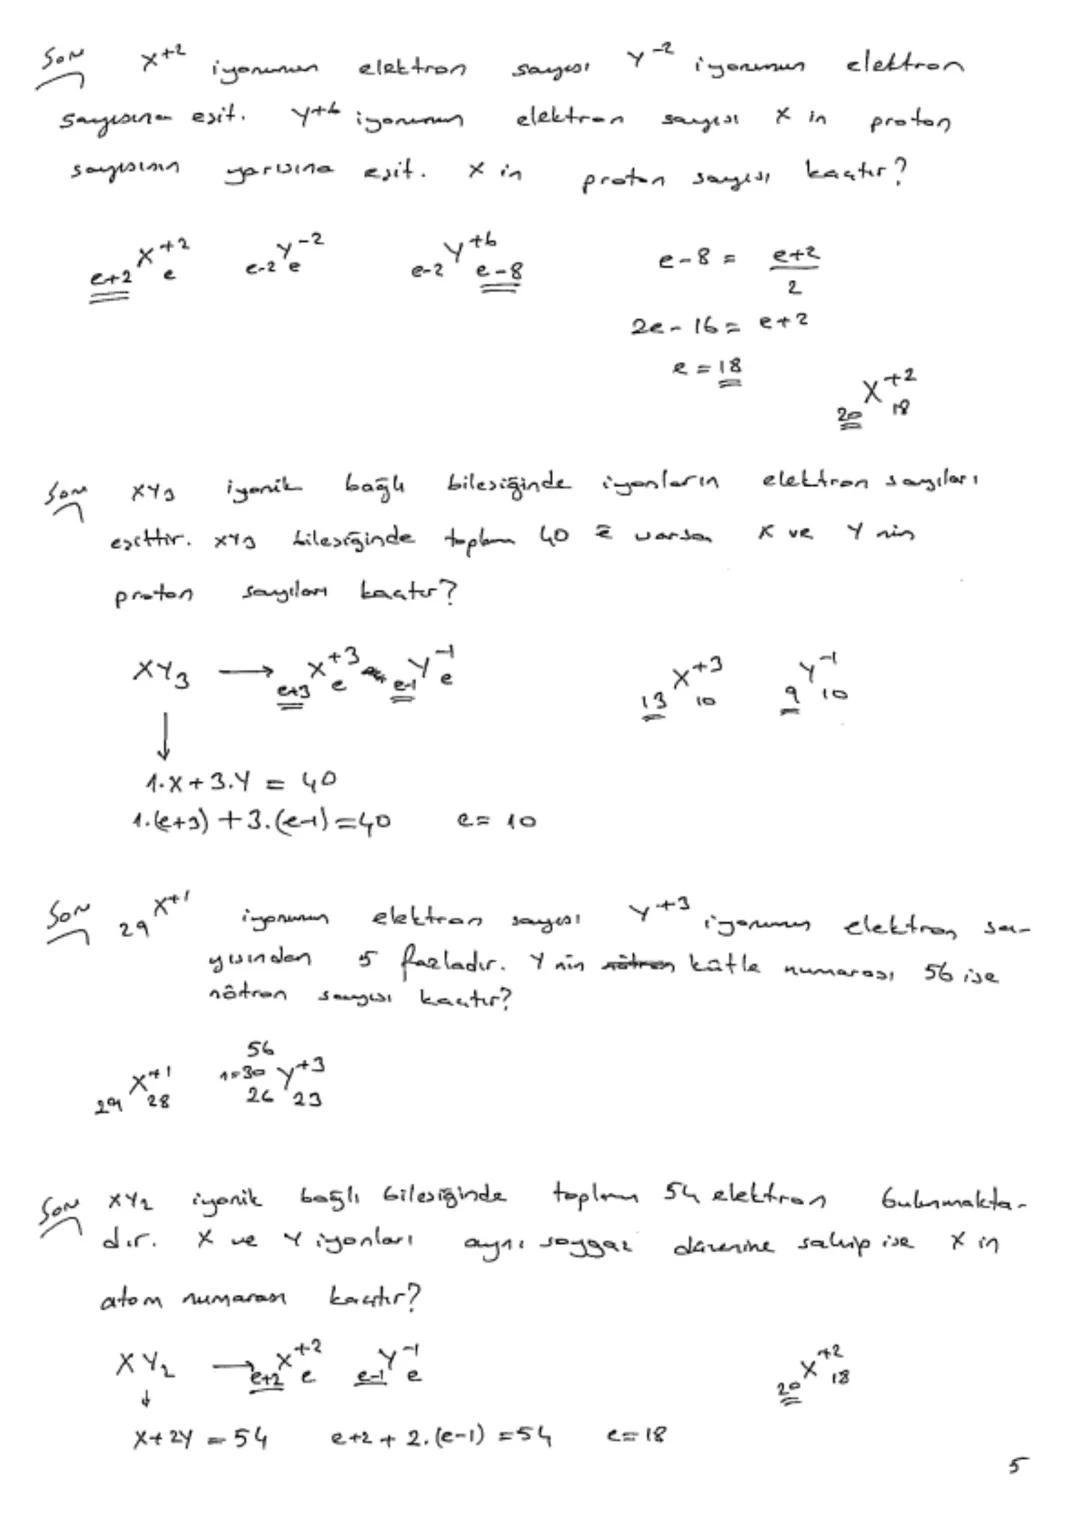 Soru X⁺² iyonunun elektron sayısı Y⁻² iyonunun elektron
sayısına eşit. Y⁺⁶ iyonunun elektron sayısı X in proton
sayısının yarısına eşit. X in proton sayısı kaçtır?
e+2 X⁺² e   e-2 Y⁻² e   e-2 Y⁺⁶ e-8   e-8 = (e+2)/2
2e-16 = e+2
e = 18
20 X⁺² 18
Soru XY₃ iyonik bağlı bileşiğinde iyonların elektron sayıları
eşittir. XY₃ bileşiğinde toplam 40 ē varsa X ve Y nin
proton sayıları kaçtır?
XY₃ → e+3 X⁺³ e   e-1 Y⁻¹ e   13 X⁺³ 10   9 Y⁻¹ 10
↓
1.X+3.Y = 40
1.(e+3)+3.(e-1)=40   e=10
Soru 29 X⁺¹ iyonunun elektron sayısı Y⁺³ iyonunun elektron sa-
yısından 5 fazladır. Y nin nötron kütle numarası 56 ise
nötron sayısı kaçtır?
29 X⁺¹ 28   56 n=30 26 Y⁺³ 23
Soru XY₂ iyonik bağlı bileşiğinde toplam 54 elektron bulunmakta-
dır. X ve Y iyonları aynı soygaz düzenine sahip ise X in
atom numarası kaçtır?
XY₂ → e+2 X⁺² e   e-1 Y⁻¹ e   20 X⁺² 18
↓
X+2Y = 54   e+2+2.(e-1)=54   e=18
5